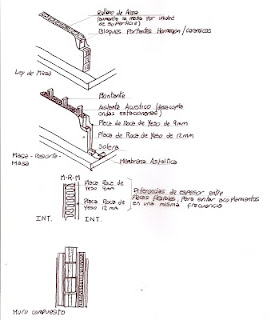 Relleno de Arena
(aumenta la masa por unidad
de superficie)
Bloques Portantes Hormigon/ceramicos
Ley de Masa
Montante
Aislante Acustico (desacopla
ondas estacionarias)
Placa de Roca de Yeso de 9mm
Placa de Roca de Yeso de 12mm
Solera
Membrana Asfaltica
Masa - Resorte -
Masa
M-R-M
Placa Roca de
Yeso 9mm
Placa Roca de
Yeso 12mm
INT. INT.
Diferencias de espesor entre
Placas flexibles, para evitar acoplamientos
en una misma frecuencia
Muro compuesto